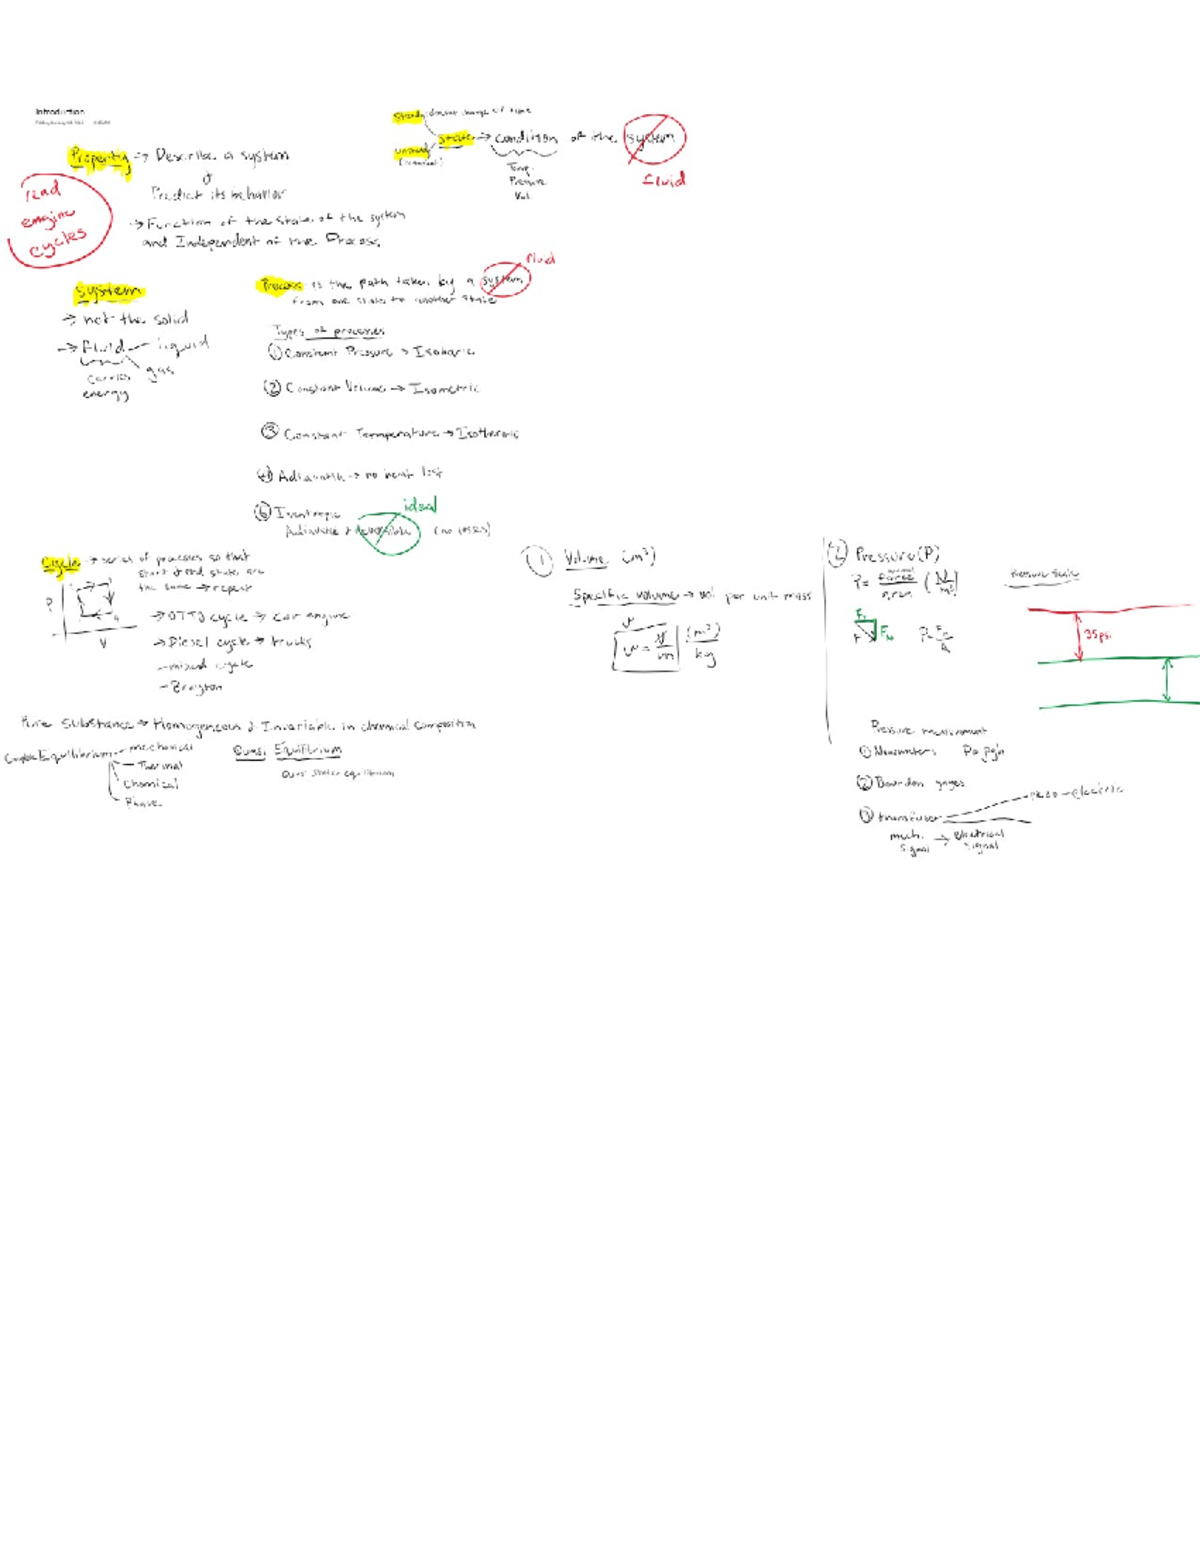 Introduction
Property → Describe a system
&
Predict its behavior
→ Function of the state of the system
and Independent of the Process
read
engine
cycles
Steady: doesn't change w/ time
unsteady
State → Condition of the system
fluid
Temp.
Pressure
Vol.
System
→ not the solid
→ fluid - liquid
gas
Carries
energy
Process is the path taken by a system
fluid
from one state to another state
Types of processes
① Constant Pressure → Isobaric
② Constant Volume → Isometric
③ Constant Temperature → Isothermic
④ Adiabatic → no heat lost
⑥ Isentropic
ideal
Adiabatic + reversible (no losses)
Cycle → series of processes so that
start & end states are
the same → repeat
P
V
→ OTTO cycle → car engine
→ Diesel cycle → trucks
- mixed cycle
- Brayton
Pure Substance → Homogeneous & Invariable in chemical composition
Equilibrium - mechanical
- Thermal
Chemical
- Phase
Quasi Equilibrium
Quasi static equilibrium
① Volume (m³)
Specific volume → vol per unit mass
v = V/m (m³)/kg
② Pressure (P)
P = normal force/area (N/m²)
F
Fₙ
P = Fₙ/A
Pressure Scale
35psi
Pressure measurement
① Manometers P = ρgh
② Bourdon gages
③ transducer
piezo-electric
mech. signal → Electrical signal